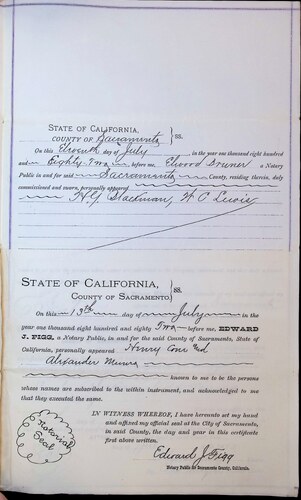 STATE OF CALIFORNIA,
COUNTY OF Sacramento } SS.
On this Eleventh day of July in the year one thousand eight hundred
and Eighty Two, before me, Elwood Bruner a Notary
Public in and for said Sacramento County, residing therein, duly
commissioned and sworn, personally appeared
H. G. Blackman, W. P. Lewis
STATE OF CALIFORNIA,
COUNTY OF SACRAMENTO } SS.
On this 13th day of July in the
year one thousand eight hundred and eighty Two before me, EDWARD
J. FIGG, a Notary Public, in and for the said County of Sacramento, State of
California, personally appeared Henry and
Alexander
known to me to be the persons
whose names are subscribed to the within instrument, and acknowledged to me
that they executed the same.
IN WITNESS WHEREOF, I have hereunto set my hand
and affixed my official seal at the City of Sacramento,
in said County, the day and year in this certificate
first above written.
Notarial
Seal
Edward J Figg
Notary Public for Sacramento County, California.